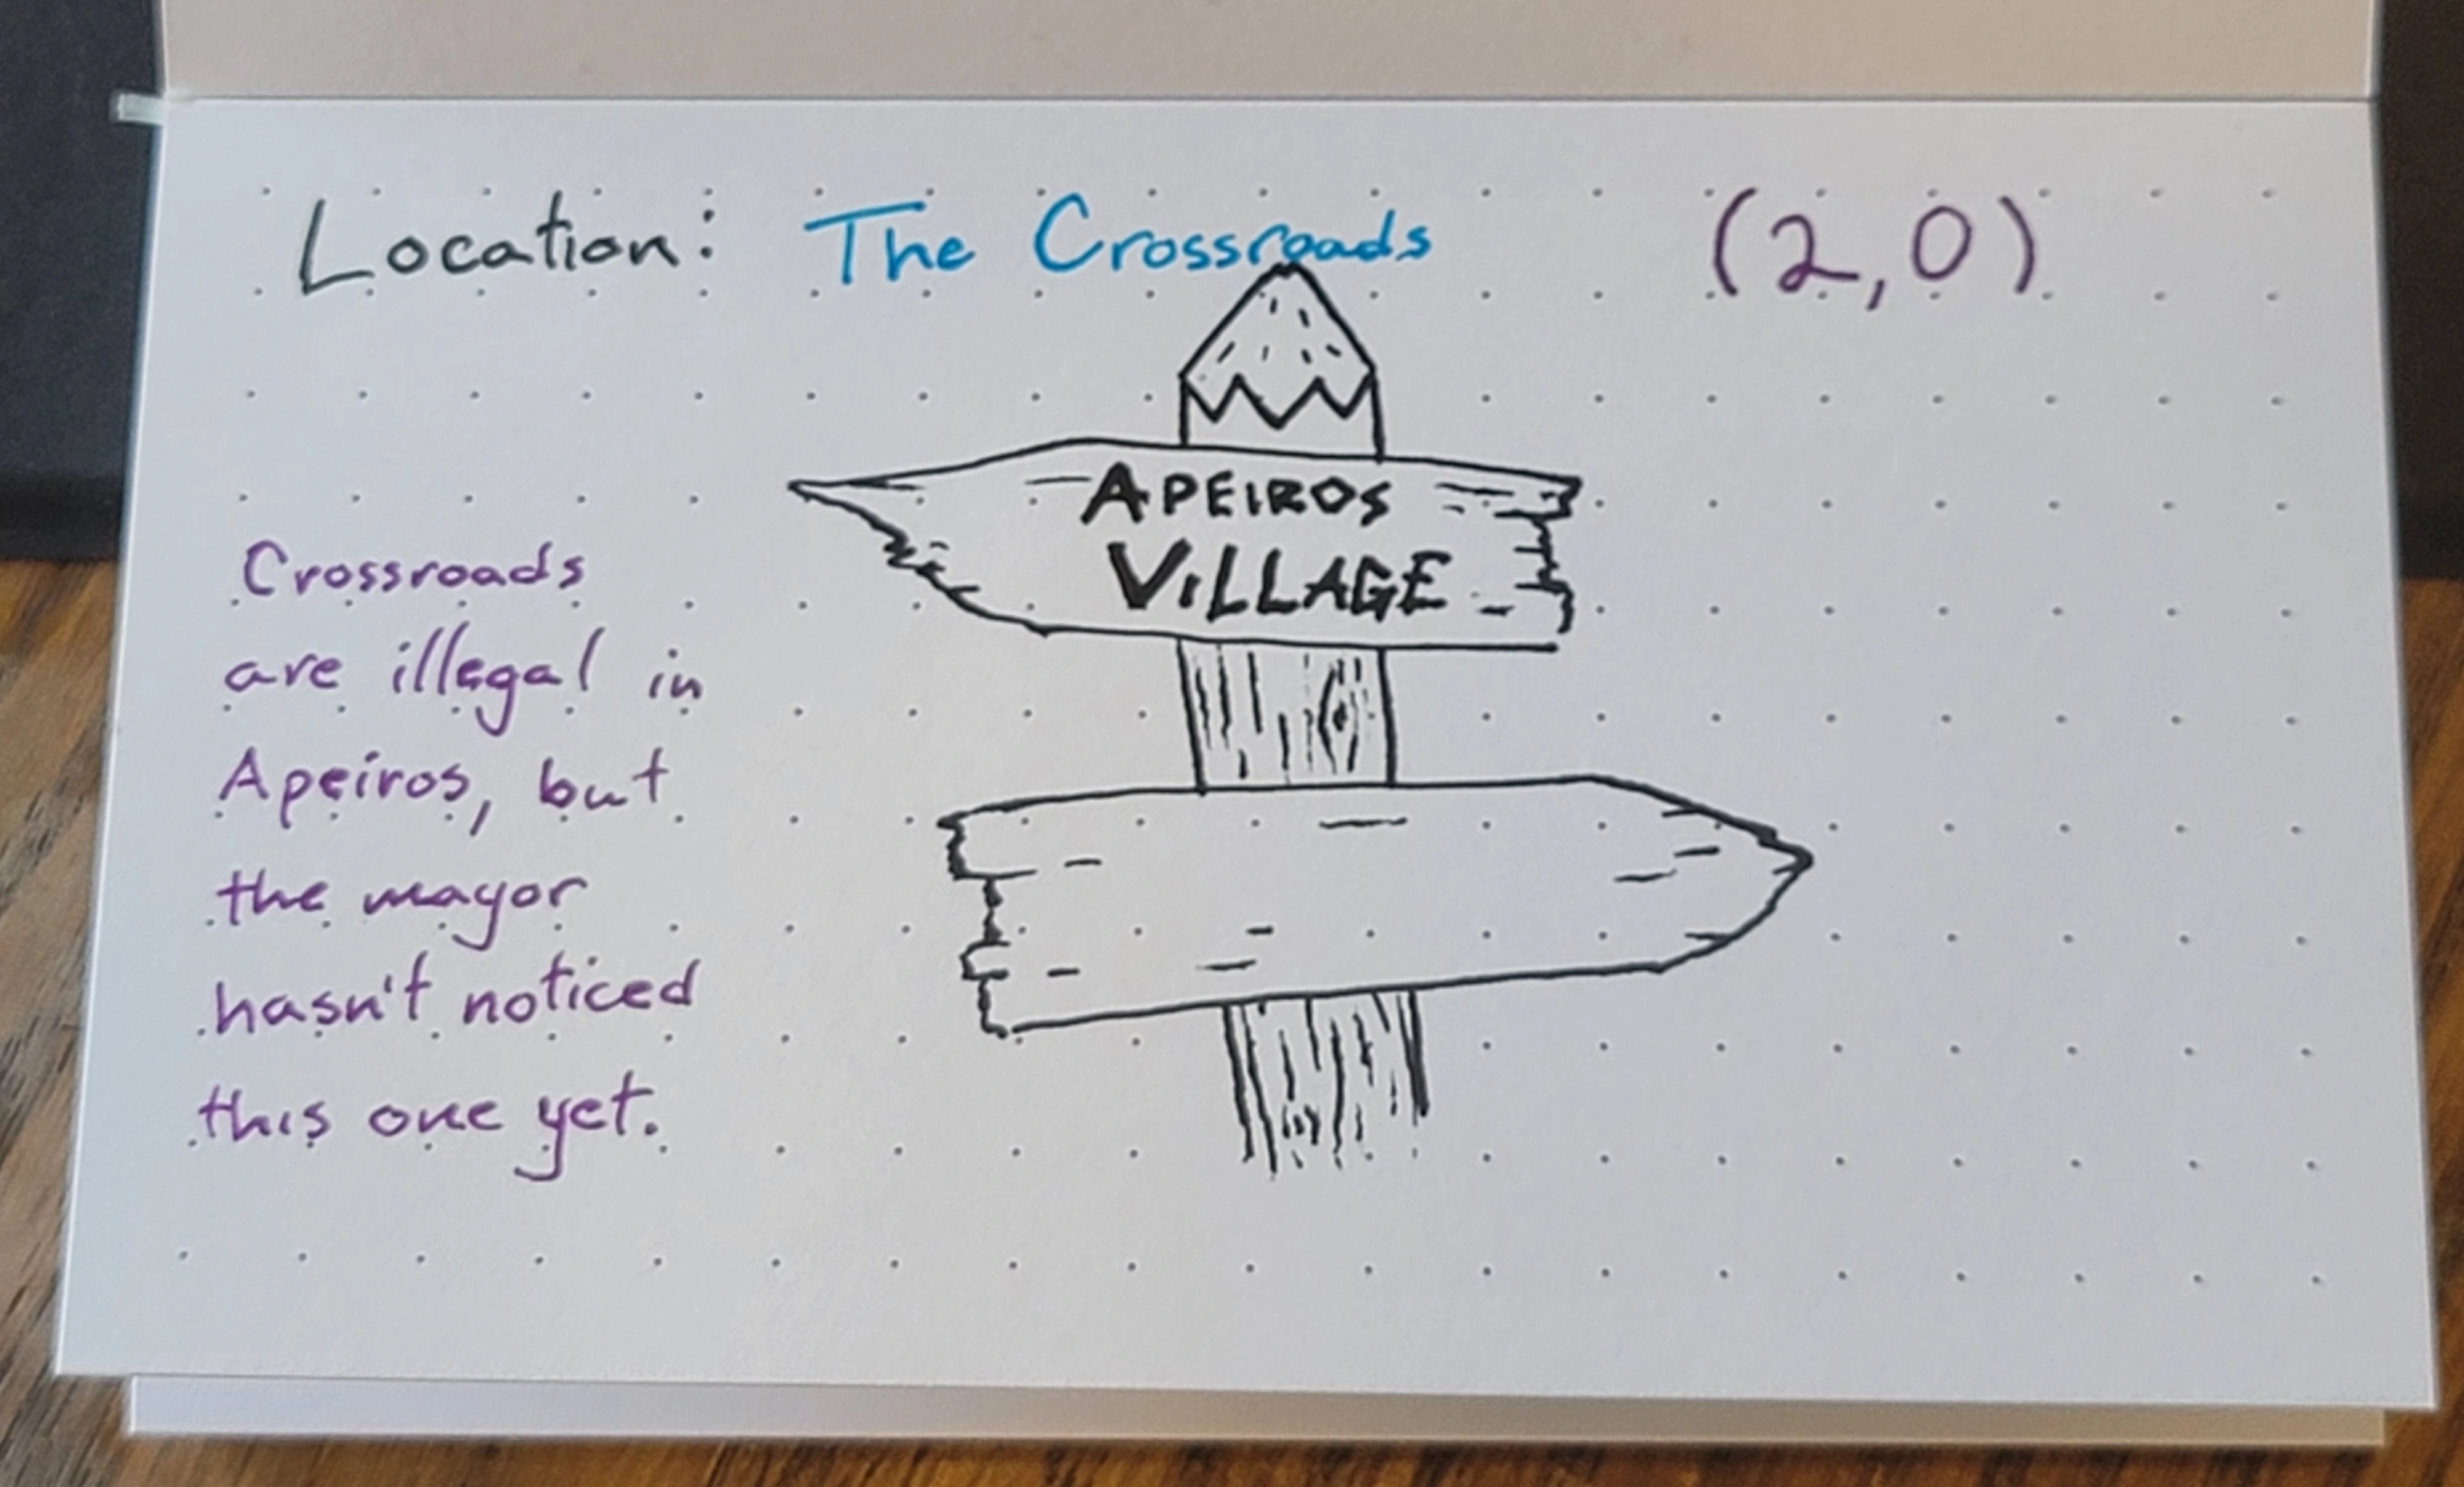 Location: The Crossroads (2,0)
APEIROS
VILLAGE
Crossroads
are illegal in
Apeiros, but
the mayor
hasn't noticed
this one yet.